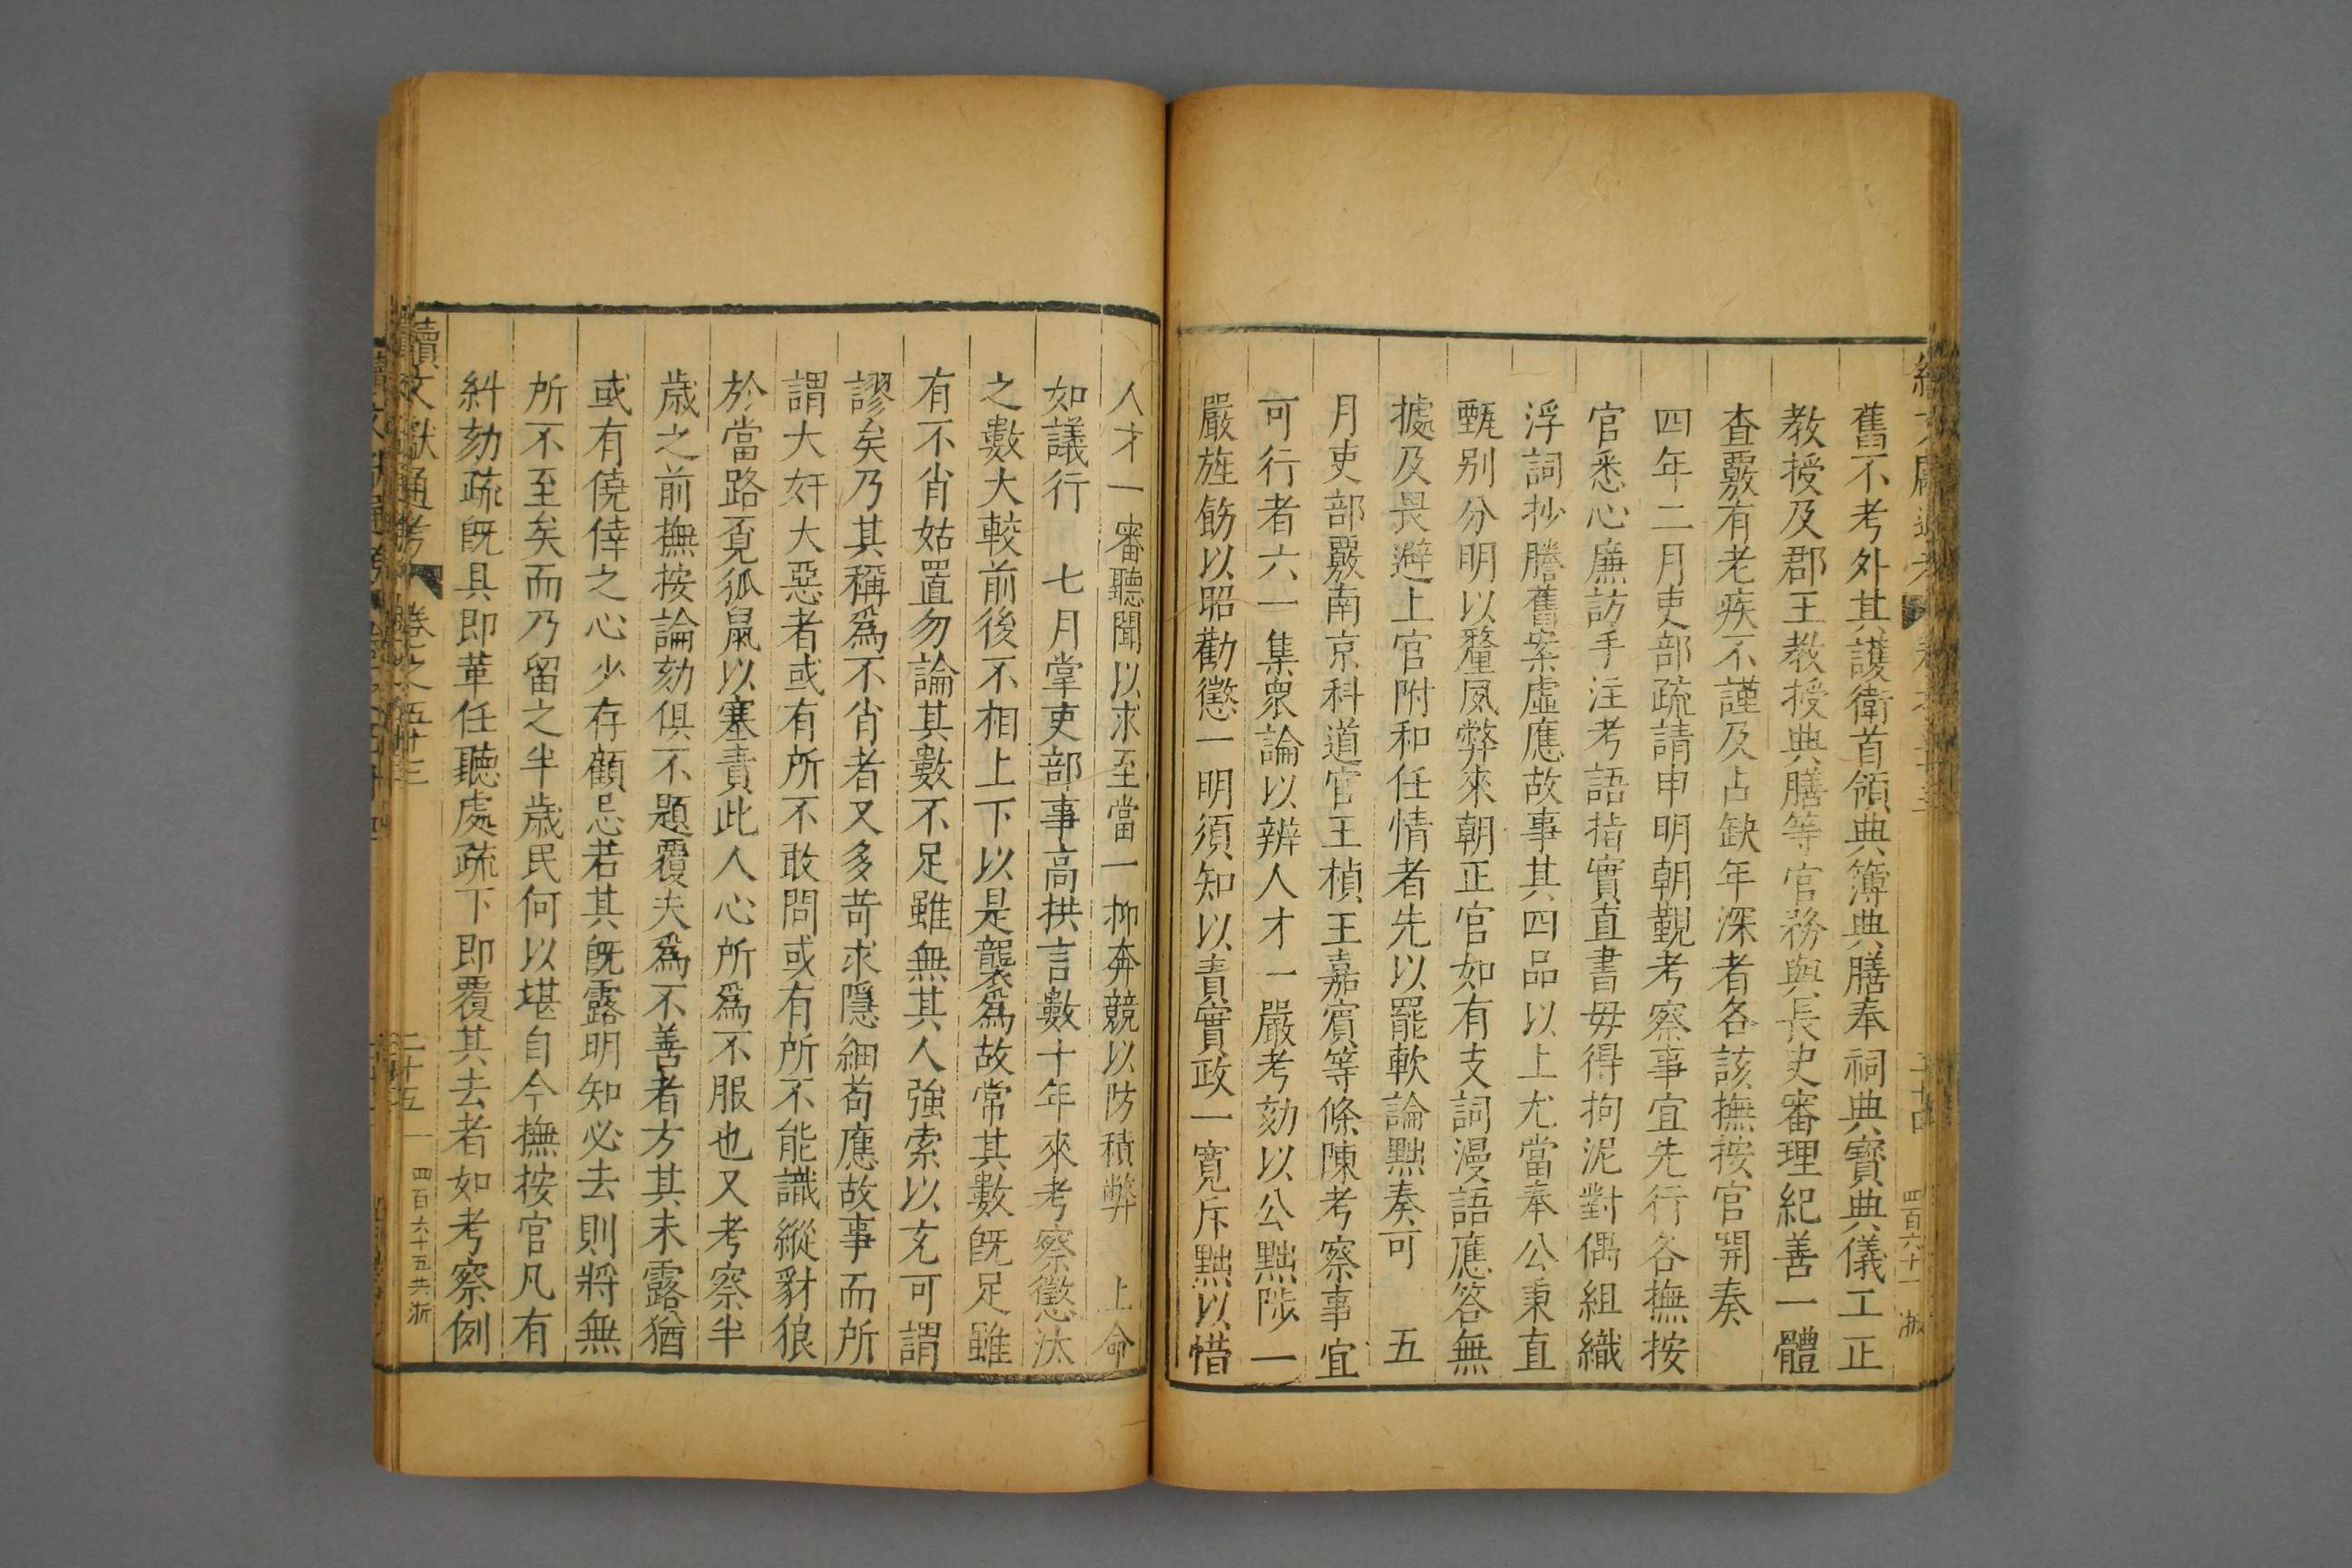 舊不考外其護衛首領典簿典膳奉祠典寶典儀工正
教授及郡王教授典膳等官務與長史審理紀善一體
查覈有老疾不謹及占缺年深者各該撫按官開奏
四年二月吏部疏請申明朝覲考察事宜先行各撫按
官悉心廉訪手注考語指實直書毋得拘泥對偶組織
浮詞抄謄舊案虛應故事其四品以上尤當奉公秉直
甄别分明以釐夙弊來朝正官如有支詞漫語應答無
據及畏避上官附和任情者先以罷軟論黜奏可 五
月吏部覈南京科道官王楨王嘉賓等條陳考察事宜
可行者六一集衆論以辨人才一嚴考劾以公黜陟一
嚴旌飭以昭勸懲一明須知以責實政一寬斥黜以惜
人才一審聽聞以求至當一抑奔競以防積弊 上命
如議行 七月掌吏部事高拱言數十年來考察懲汰
之數大較前後不相上下以是襲爲故常其數旣足雖
有不肖姑置勿論其數不足雖無其人強索以充可謂
謬矣乃其稱爲不肖者又多苛求隱細苟應故事而所
謂大奸大惡者或有所不敢問或有所不能識縱豺狼
於當路覓狐鼠以塞責此人心所爲不服也又考察半
歲之前撫按論劾俱不題覆夫爲不善者方其未露猶
或有僥倖之心少存顧忌若其旣露明知必去則將無
所不至矣而乃留之半歲民何以堪自今撫按官凡有
糾劾疏旣具即革任聽處疏下即覆其去者如考察例
續文獻通考 卷之五十三 二十五 四百六十五共浙